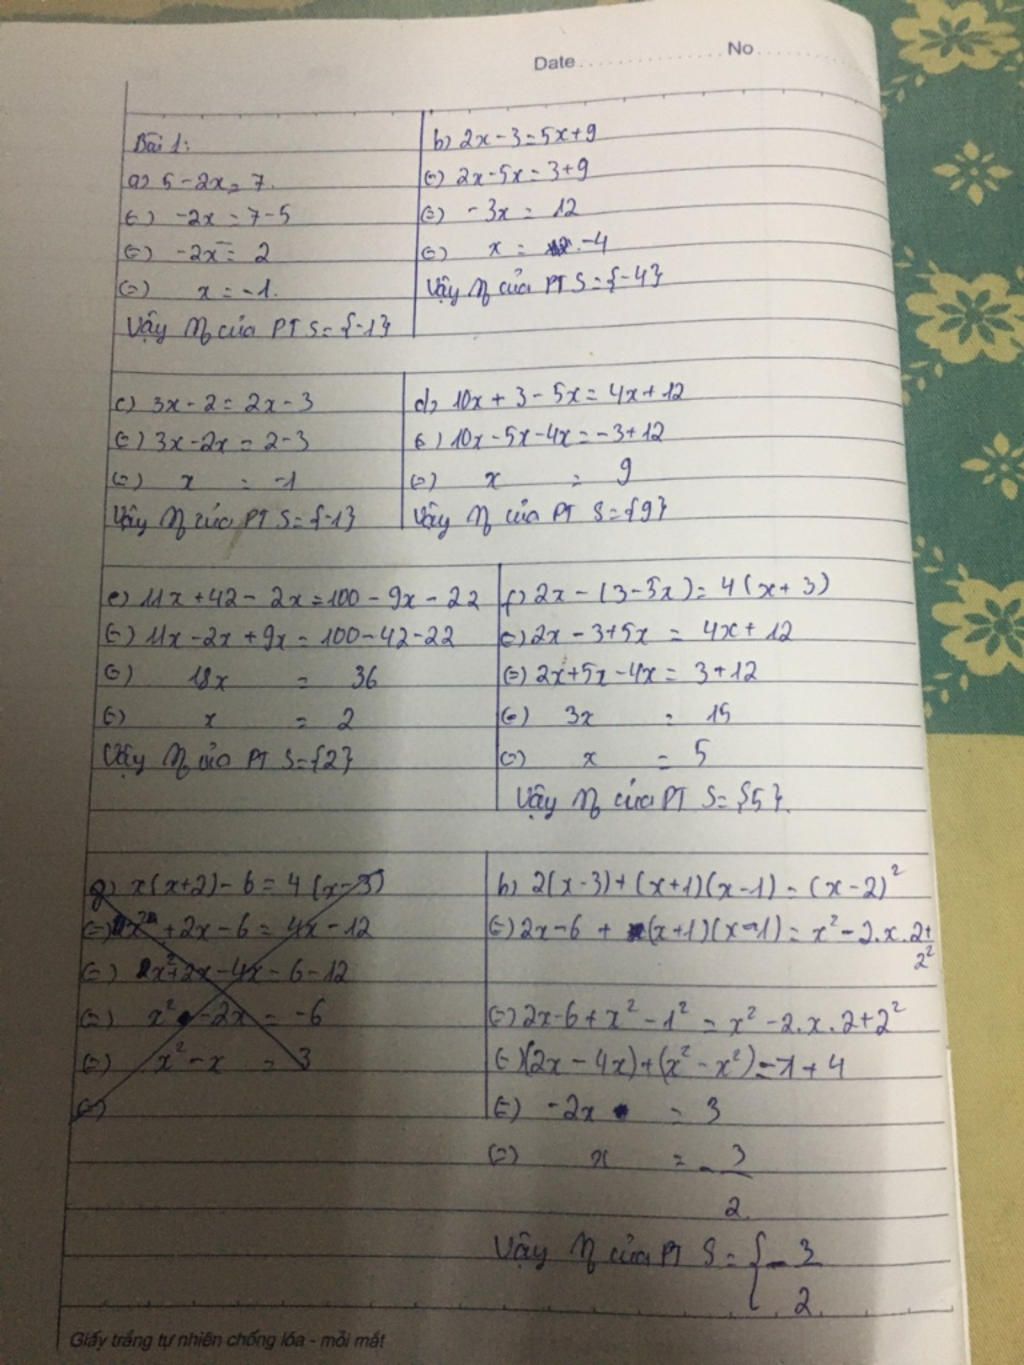 Date No
Bài 1:
a) 5 - 2x = 7.
(=) -2x = 7-5
(=) -2x = 2
(=) x = -1.
Vậy n0 của PT S={-1}
b) 2x - 3 = 5x+9
(=) 2x-5x = 3+9
(=) -3x = 12
(=) x = -4
Vậy n0 của PT S={-4}
c) 3x - 2 = 2x - 3
(=) 3x-2x = 2-3
(=) x = -1
Vậy n0 của PT S={-1}
d) 10x + 3 - 5x = 4x+12
(=) 10x-5x-4x = -3+12
(=) x = 9
Vậy n0 của PT S={9}
e) 11x + 42 - 2x = 100 - 9x - 22
(=) 11x - 2x + 9x = 100-42-22
(=) 18x = 36
(=) x = 2
Vậy n0 của PT S={2}
f) 2x - (3-5x) = 4(x+3)
(=) 2x - 3+5x = 4x + 12
(=) 2x+5x-4x = 3+12
(=) 3x = 15
(=) x = 5
Vậy n0 của PT S={5}.
g) x(x+2) - 6 = 4(x-3)
(=) x² + 2x - 6 = 4x - 12
(=) x²+2x-4x = 6-12
(=) x² -2x = -6
(=) x² - x = 3
(=)
h) 2(x-3)+(x+1)(x-1) = (x-2)²
(=) 2x-6 + (x+1)(x-1) = x² - 2.x.2+
2²
(=) 2x-6+x²-1² = x²-2.x.2+2²
(=) (2x-4x)+(x²-x²) = 7+4
(=) -2x = 3
(=) x = -3/2.
Vậy n0 của PT S = {-3/2.
Giấy trắng tự nhiên chống lóa - mỏi mắt